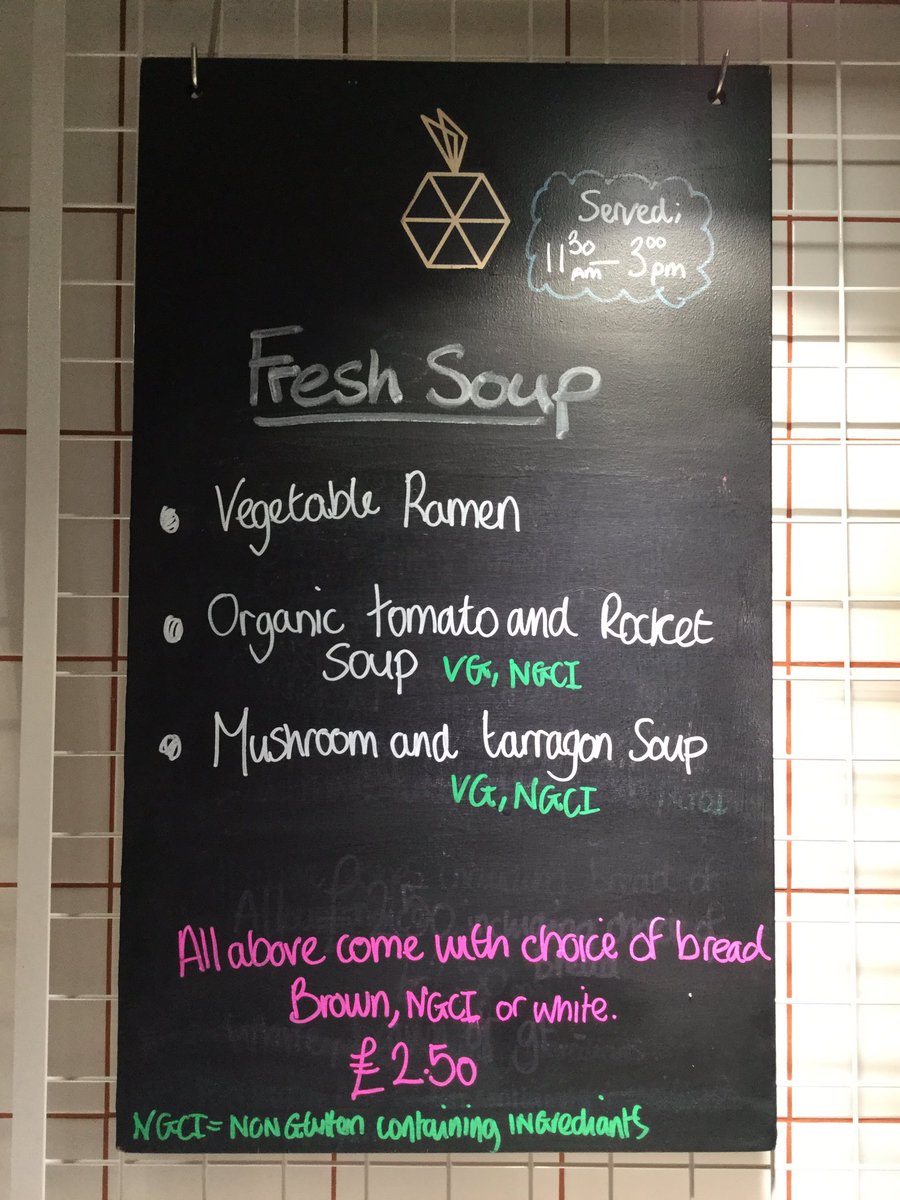 Served;
11 30 AM – 3 00 pm
Fresh Soup
• Vegetable Ramen
• Organic tomato and Rocket
Soup VG, NGCI
• Mushroom and tarragon Soup
VG, NGCI
All above come with choice of bread
Brown, NGCI or white.
£2.50
NGCI = NON Gluten containing INgrediants